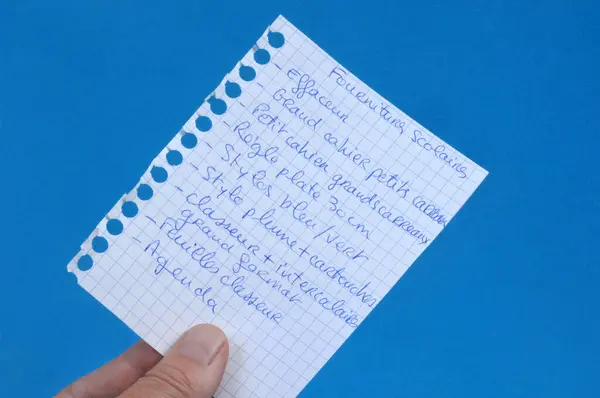 Fournitures scolaires
- Effaceur
- Grand cahier petits carreaux
- Petit cahier grands carreaux
- Règle plate 30cm
- Stylos bleu/vert
- Stylo plume + cartouches
- classeur + intercalaires
grand format
- Feuilles classeur
- Agenda